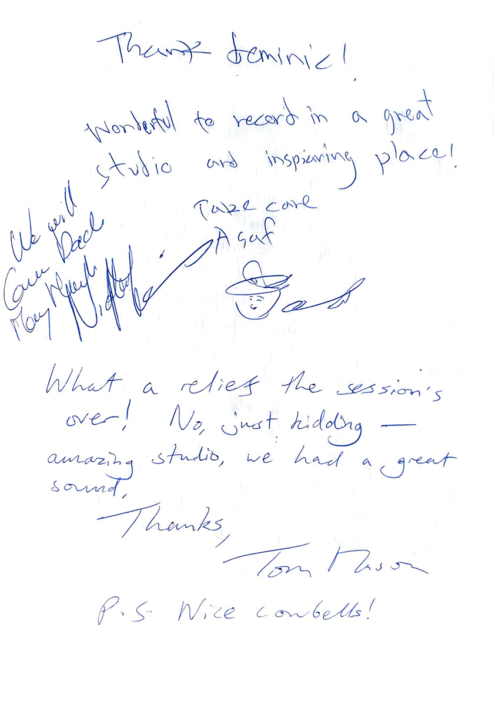 Thank Dominic!
Wonderful to record in a great
studio and inspiaring place!
Take care
Asaf
We will
Come Back
What a relief the session's
over! No, just kidding —
amazing studio, we had a great
sound,
Thanks,
Tom Mason
P.S. Nice cowbells!